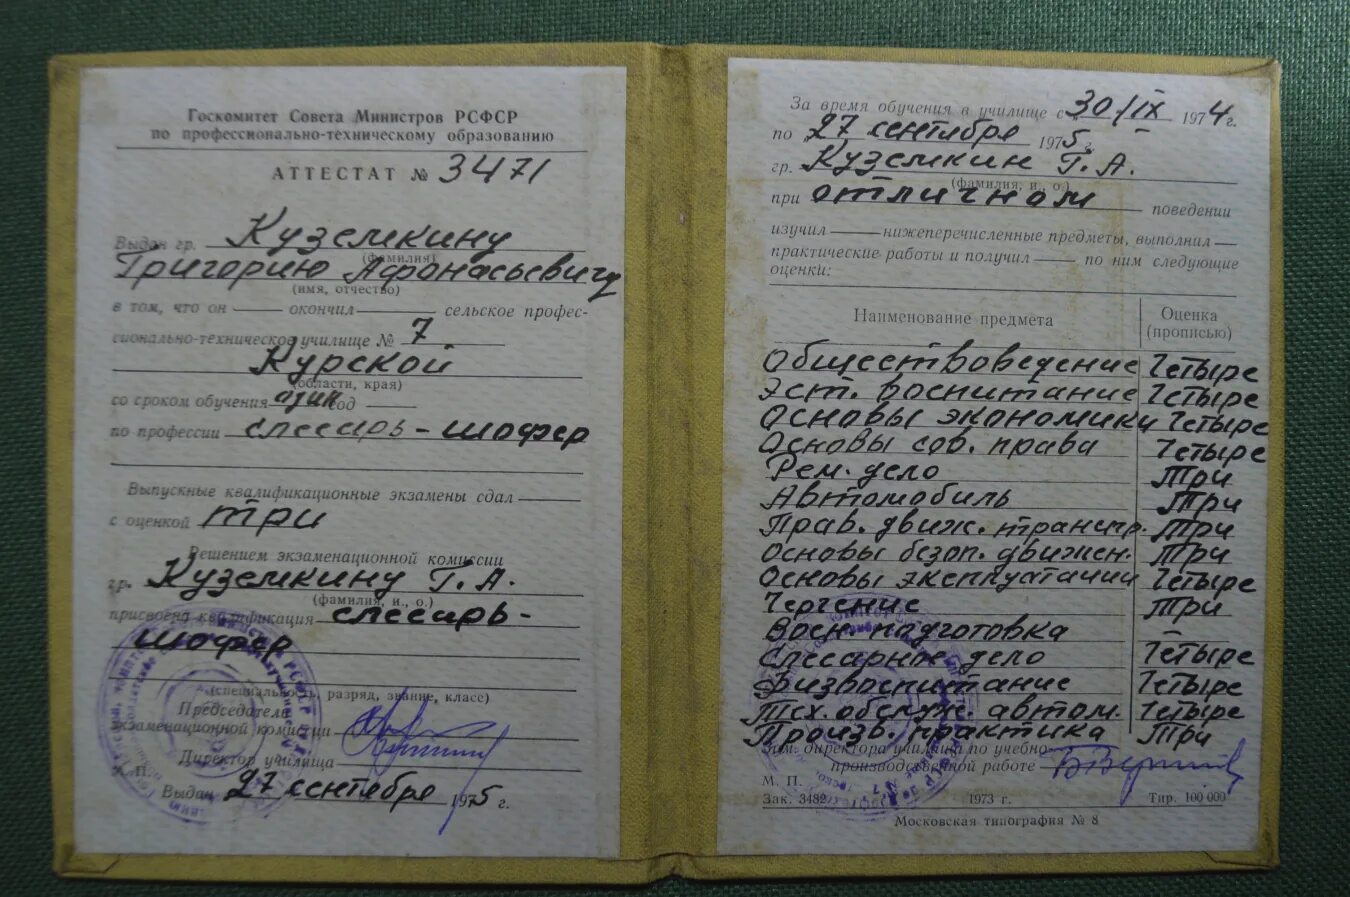 Госкомитет Совета Министров РСФСР
по профессионально-техническому образованию
АТТЕСТАТ № 3471
Выдан гр. Куземкину
(фамилия)
Григорию Афанасьевичу
(имя, отчество)
в том, что он окончил сельское профес-
сионально-техническое училище № 7
Курской
(области, края)
со сроком обучения один год
по профессии слесарь-шофер
Выпускные квалификационные экзамены сдал
с оценкой три
Решением экзаменационной комиссии
гр. Куземкину Г. А.
(фамилия, и., о.)
присвоена квалификация слесарь-
шофер
(специальность, разряд, звание, класс)
Председатель
экзаменационной комиссии
Директор училища
М. П.
Выдан 27 сентября 1975 г.
За время обучения в училище с 30/IX 1974 г.
по 27 сентября 1975 г.
гр. Куземкин Г. А.
(фамилия, и., о.)
при отличном поведении
изучил нижеперечисленные предметы, выполнил
практические работы и получил по ним следующие
оценки:
Наименование предмета Оценка
(прописью)
Обществоведение Четыре
Эст. воспитание Четыре
Основы экономики Четыре
Основы сов. права Четыре
Рем. дело Три
Автомобиль Три
Прав. движ. трансп. Три
Основы безоп. движен. Три
Основы эксплуатации Четыре
Черчение Три
Воен. подготовка —
Слесарное дело Четыре
Физвоспитание Четыре
Тех. обслуж. автом. Четыре
Произв. практика Три
Зам. директора училища по учебно-
производственной работе
М. П.
Зак. 3482 1973 г. Тир. 100 000
Московская типография № 8